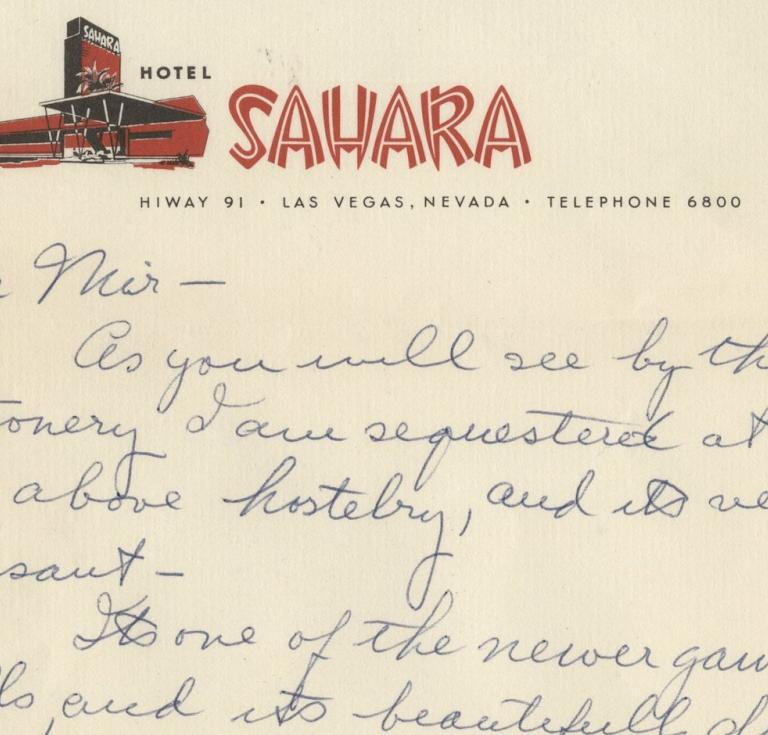 SAHARA
HOTEL
SAHARA
HIWAY 91 • LAS VEGAS, NEVADA • TELEPHONE 6800
Mir —
As you will see by th
tonery I am sequestered at
above hostelry, and its ve
sant —
Its one of the newer gam
ls, and its beautifull